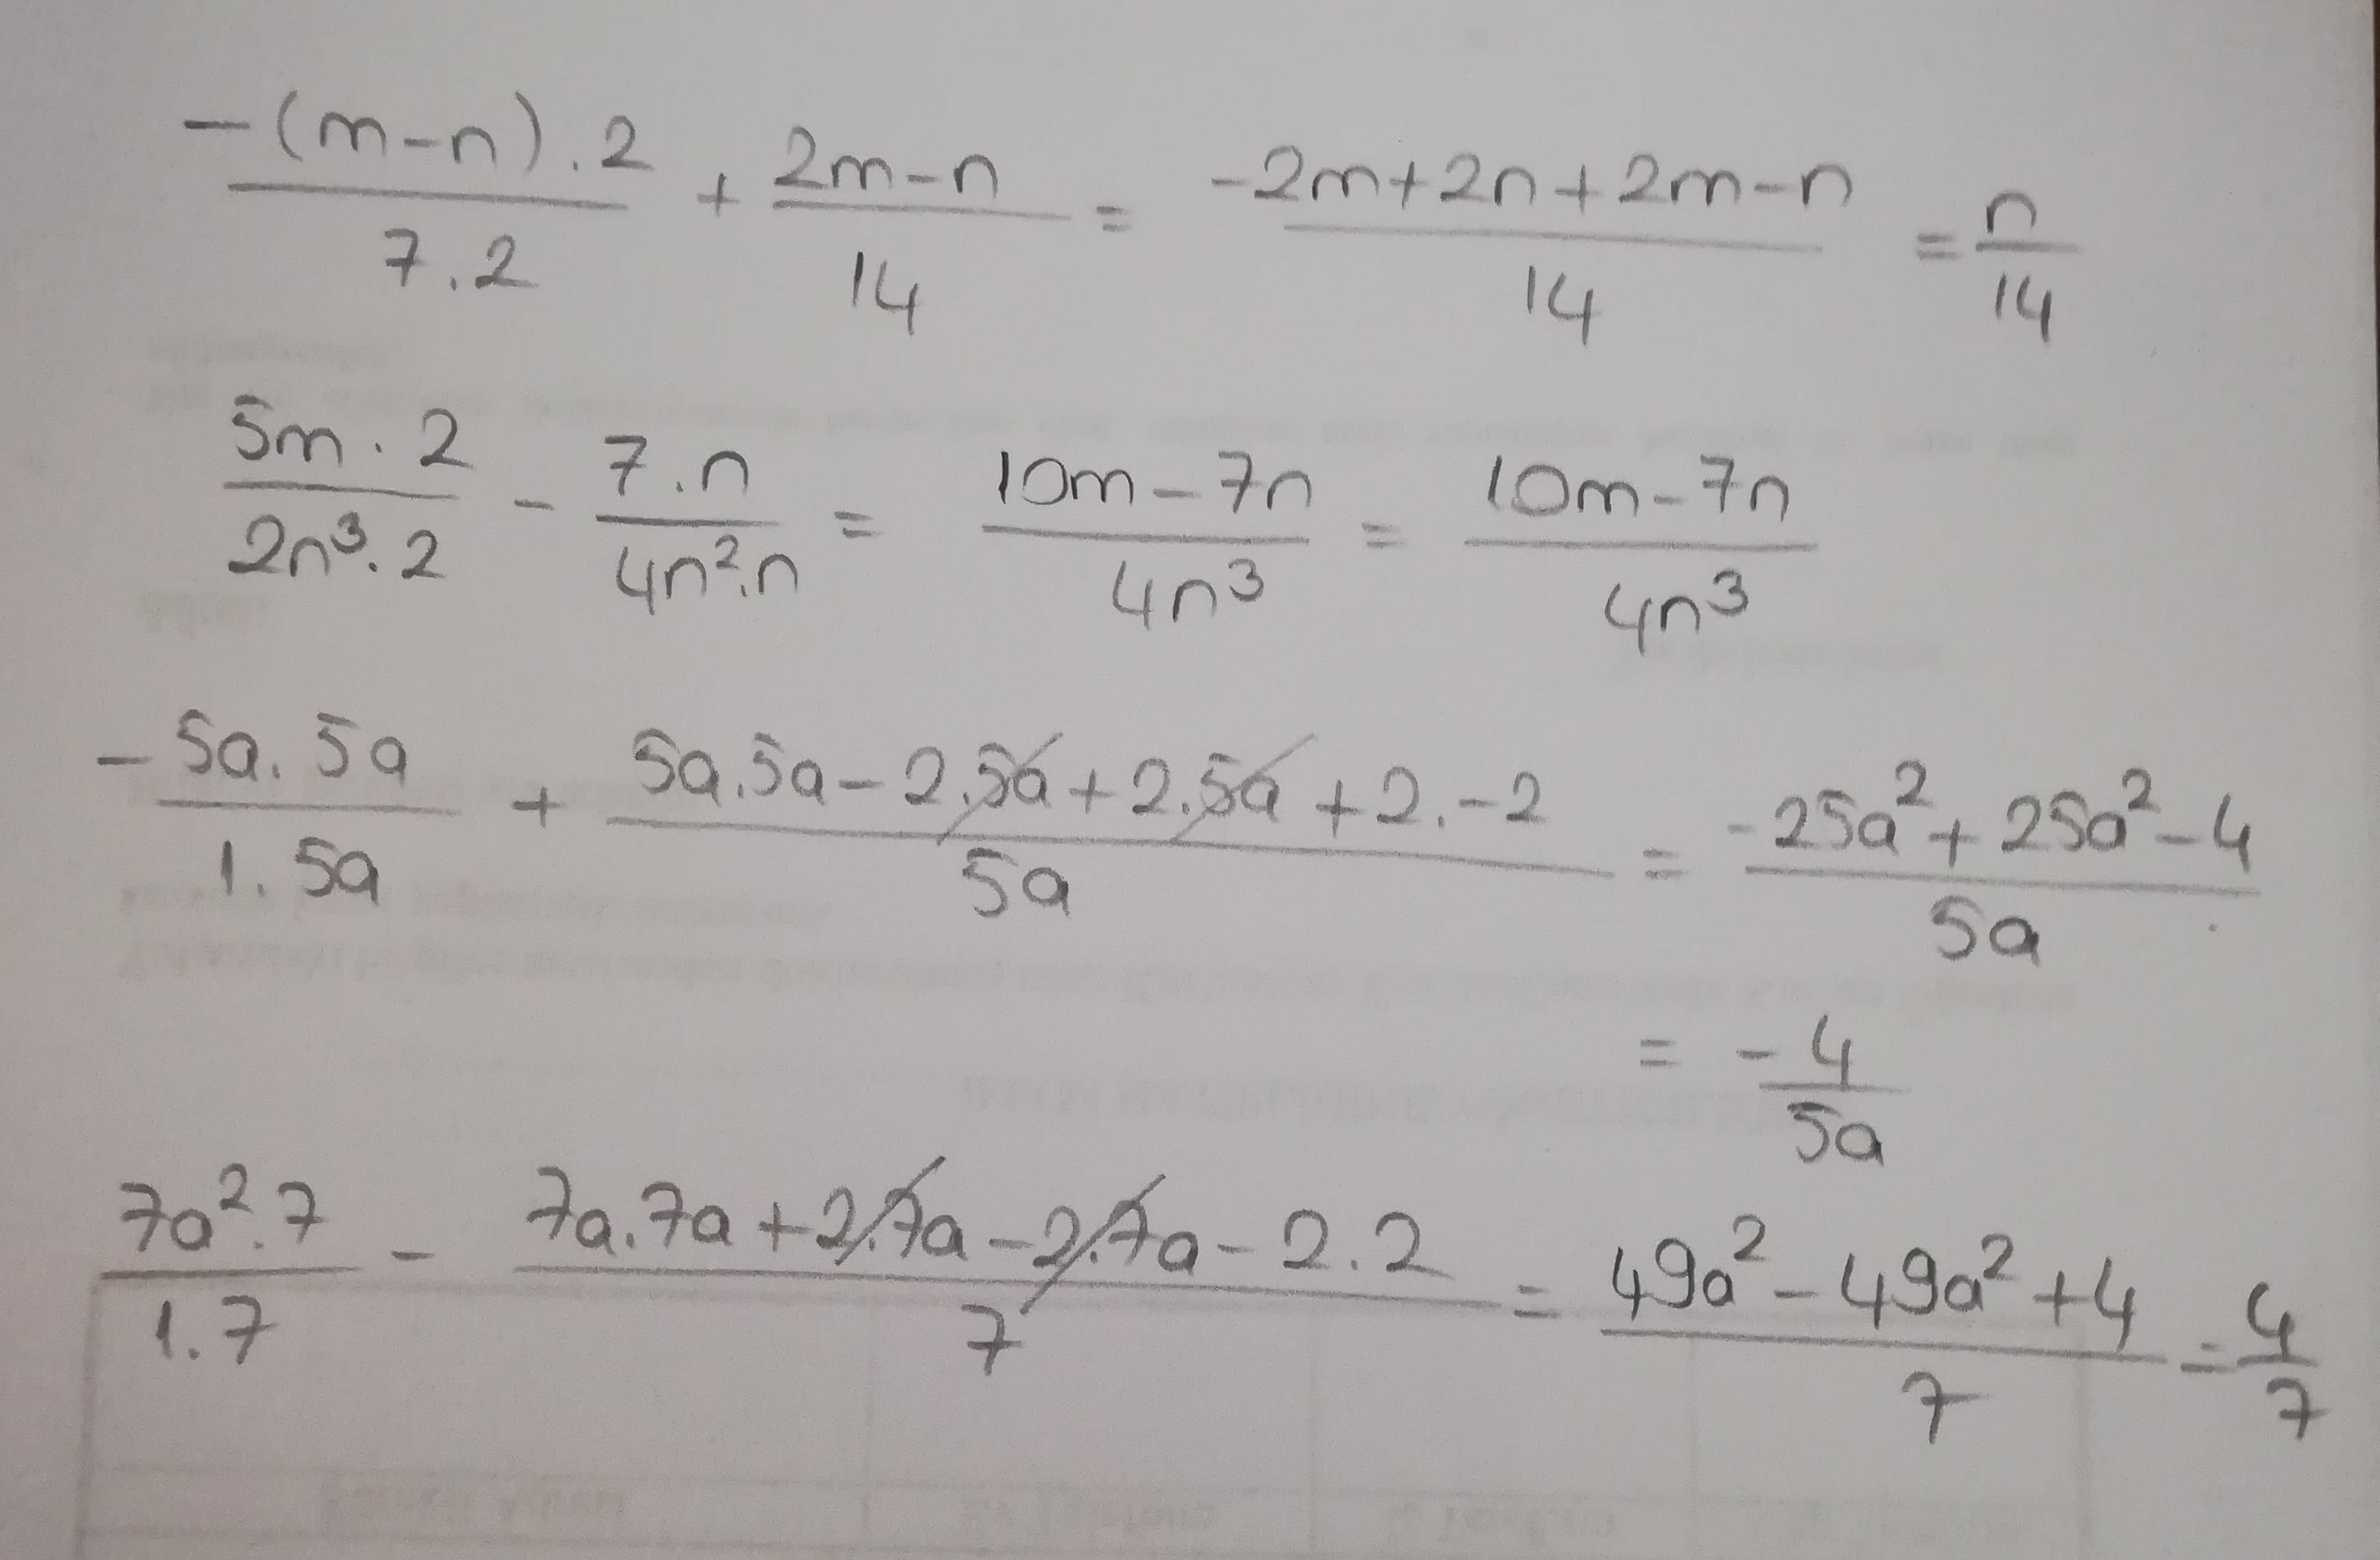 -(m-n).2/7.2 + 2m-n/14 = -2m+2n+2m-n/14 = n/14
5m.2/2n³.2 - 7.n/4n².n = 10m-7n/4n³ = 10m-7n/4n³
-5a.5a/1.5a + 5a.5a-2.5a+2.5a+2.-2/5a = -25a²+25a²-4/5a
= -4/5a
7a².7/1.7 - 7a.7a+2.7a-2.7a-2.2/7 = 49a²-49a²+4/7 = 4/7